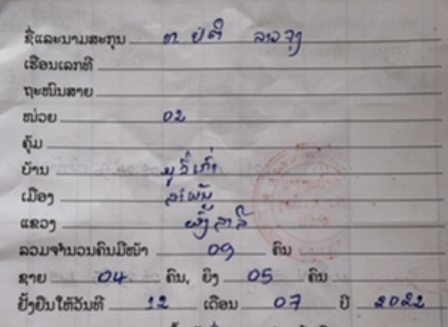 ຊື່ແລະນາມສະກຸນ ທ ປໍຕີ ລາວຈູງ
ເຮືອນເລກທີ
ຖະໜົນສາຍ
ໜ່ວຍ 02
ຄຸ້ມ
ບ້ານ
ເມືອງ ສຳພັນ
ແຂວງ ຜົ້ງສາລີ
ລວມຈຳນວນຄົນມີໜ້າ 09 ຄົນ
ຊາຍ 04 ຄົນ, ຍິງ 05 ຄົນ
ຢັ້ງຢືນໃຫ້ວັນທີ 12 ເດືອນ 07 ປີ 2022